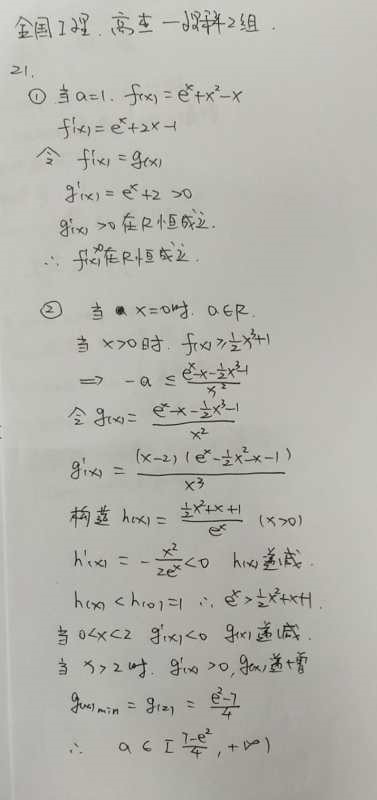 全国I理.高三一轮群2组.
21.
① 当a=1. f(x)=eˣ+x²-x
f'(x)=eˣ+2x-1
令 f'(x)=g(x)
g'(x)=eˣ+2>0
g'(x)>0在R恒成立.
∴ f'(x)>0在R恒成立.
② 当 x=0时. a∈R.
当 x>0时. f(x)≥½x³+1
⟹ -a ≤ (eˣ-x-½x³-1)/x²
令 g(x)= (eˣ-x-½x³-1)/x²
g'(x)= (x-2)(eˣ-½x²-x-1)/x³
构造 h(x)= (½x²+x+1)/eˣ (x>0)
h'(x)= -x²/(2eˣ)<0 h(x)递减.
h(x)<h(0)=1 ∴ eˣ>½x²+x+1.
当 0<x<2 g'(x)<0 g(x)递减.
当 x>2时. g'(x)>0, g(x)递增
g(x)min=g(2)= (e²-7)/4
∴ a∈[(7-e²)/4, +∞)